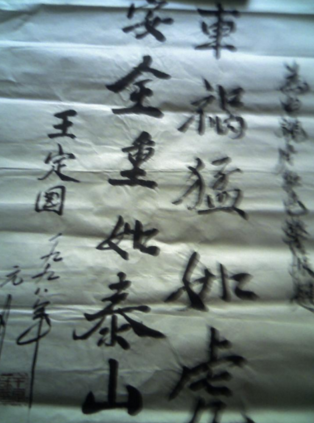 車禍猛如虎
安全重如泰山
王定国
一九九八年
元月